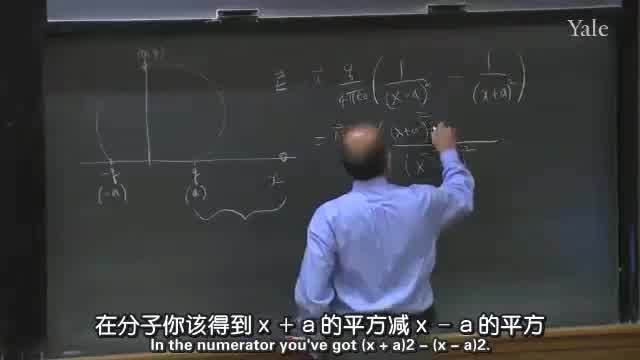 Yale
(0, y)
E⃗ i⃗ q/4πε₀ ( 1/(x-a)² - 1/(x+a)² )
= i⃗ (x+a)²
(x
-q q x
(-a) (a)
在分子你该得到 x + a 的平方减 x - a 的平方
In the numerator you've got (x + a)2 - (x - a)2.